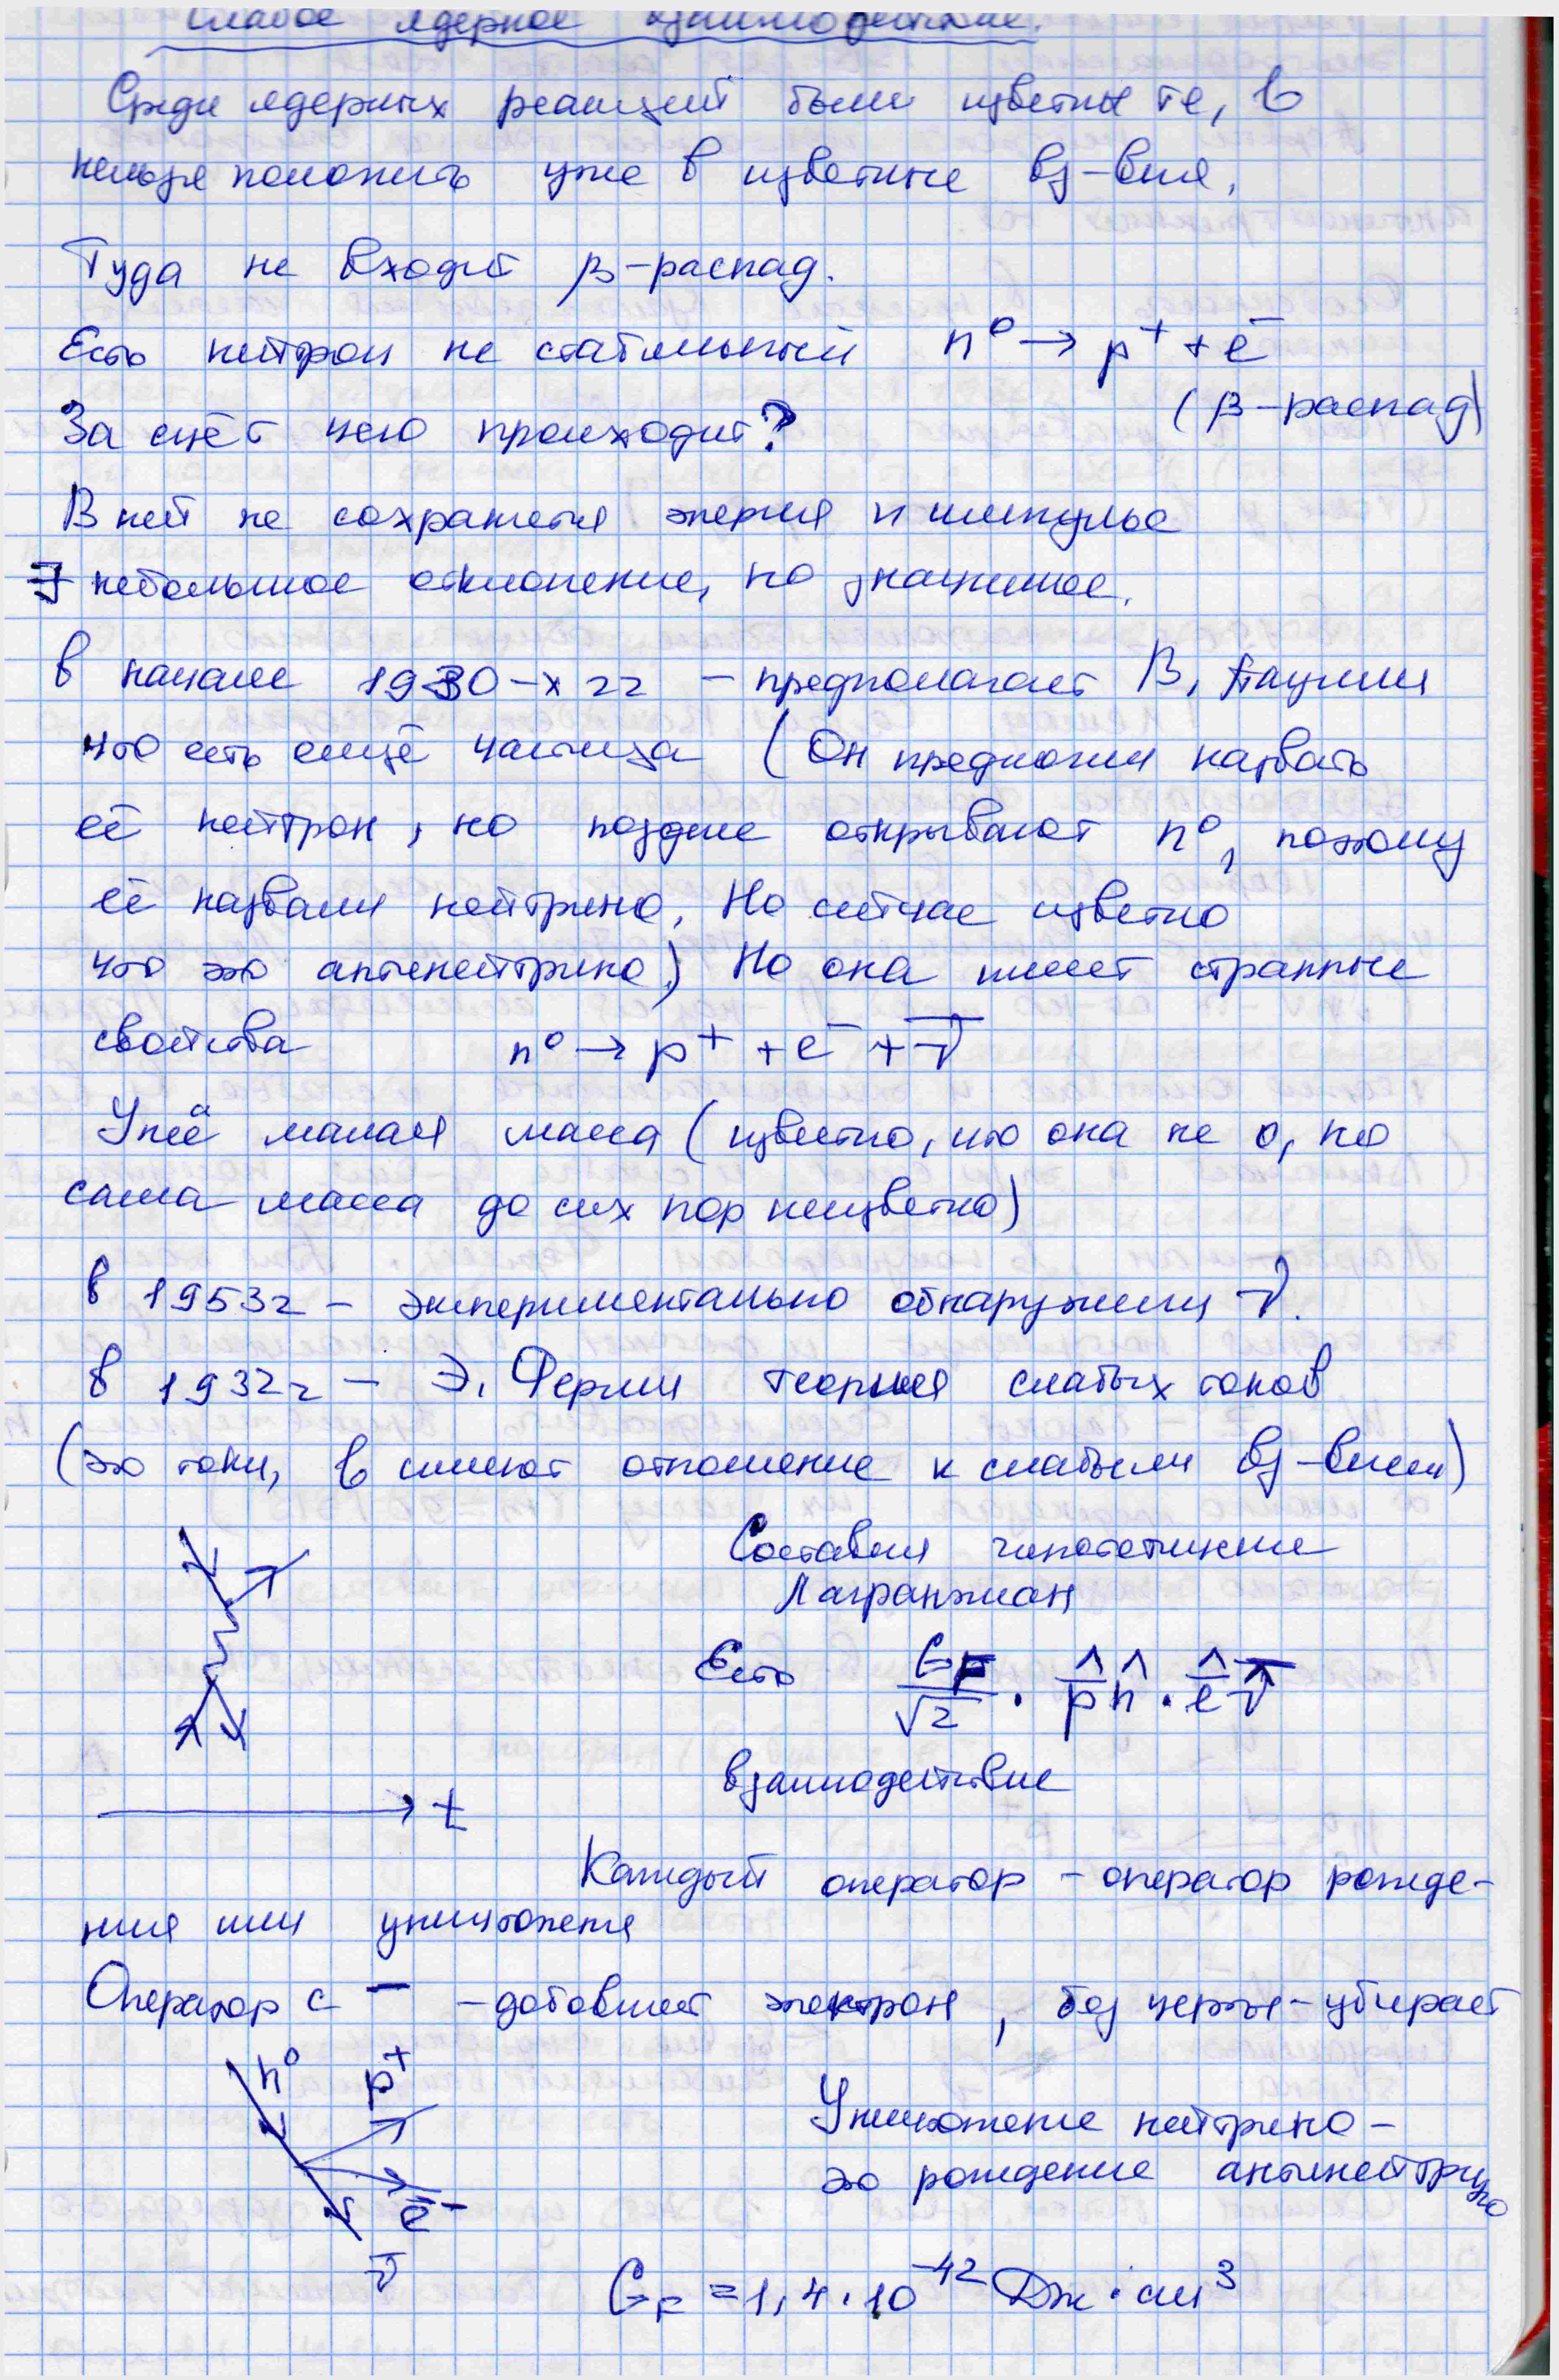 Слабое ядерное взаимодействие.
Среди ядерных реакций были известны те, в
нельзя положить уже в известные вз-вия.
Туда не входит β-распад.
Есть нейтрон не стабильный n⁰ → p⁺ + e⁻
(β-распад)
За счёт чего происходит?
В ней не сохраняется энергия и импульс
∃ небольшое отклонение, но значимое.
в начале 1930-х гг - предполагает В. Паулии
что есть ещё частица (Он предложил назвать
её нейтрон, но позднее открывают n⁰, поэтому
её назвали нейтрино. Но сейчас известно
что это антинейтрино.) Но она имеет странные
свойства n⁰ → p⁺ + e⁻ + ν̅
У неё малая масса (известно, что она не 0, но
сама масса до сих пор неизвестна)
в 1953г - экспериментально обнаружили ν.
в 1932г - Э. Ферми теория слабых токов
(это токи, в имеют отношение к слабым вз-виям)
Составил гипотетические
Лагранжиан
Есть G_F/√2 · p̅̂ n̂ · e̅̂ ν̅
взаимодействие
t
Каждый оператор - оператор рожде-
ния или уничтожения
Оператор с ‾ - добовляет электрон, без черты - убирает
n⁰ p⁺
Уничтожение нейтрино -
это рождение антинейтрино
e⁻
ν̅
G_F = 1,4 · 10⁻⁴² Дж · см³